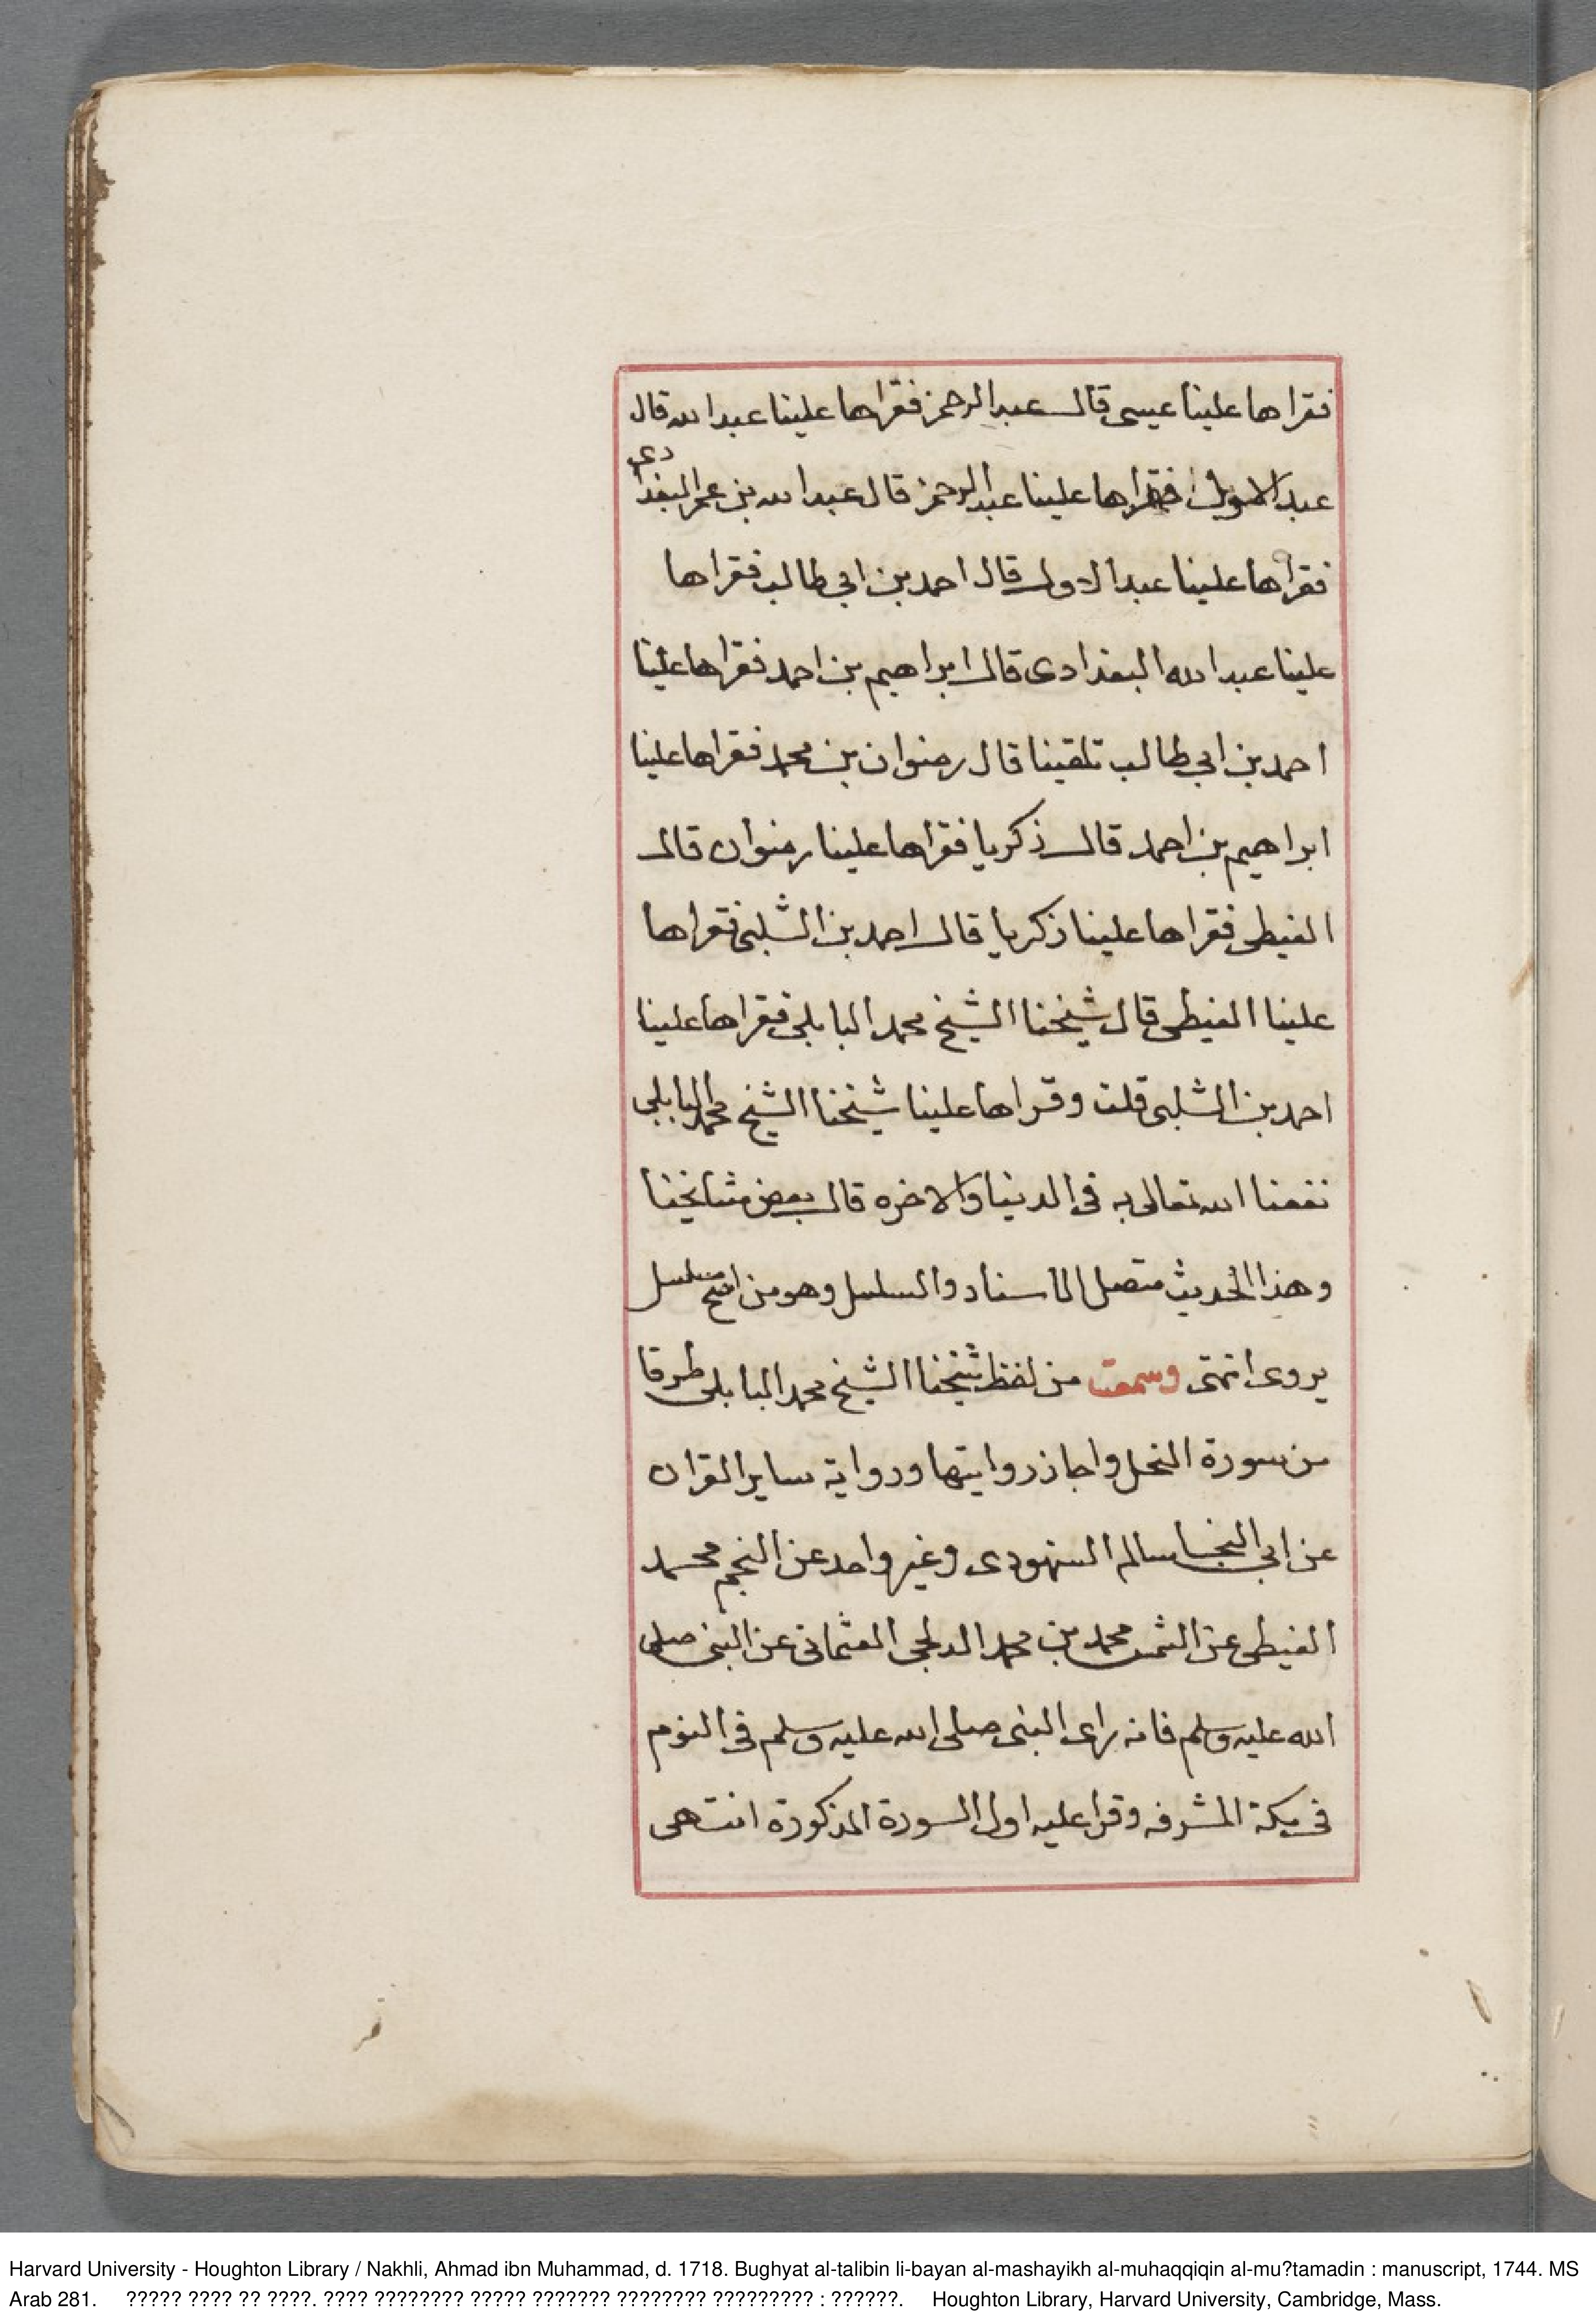 فقراها علينا عيسى قال عبد الرحمن فقراها علينا عبد الله قال
عبد الاول فقراها علينا عبد الرحمن قال عبد الله بن عمر البغدادى
فقراها علينا عبد الاول قال احمد بن ابي طالب فقراها
علينا عبد الله البغدادى قال ابراهيم بن احمد فقراها علينا
احمد بن ابي طالب تلقينا قال رضوان بن محمد فقراها علينا
ابراهيم بن احمد قال زكريا فقراها علينا رضوان قال
الغيطى فقراها علينا زكريا قال احمد بن الشلبى فقراها
علينا الغيطى قال شيخنا الشيخ محمد البابلى فقراها علينا
احمد بن الشلبى قلت وقراها علينا شيخنا الشيخ محمد البابلى
نفعنا الله تعالى به فى الدنيا والاخره قال بعض مشايخنا
وهذا الحديث متصل الاسناد والسلسل وهو من اصح مسلسل
يروى انتهى وسمعت من لفظ شيخنا الشيخ محمد البابلى طرفا
من سورة النحل واجاز روايتها ورواية ساير القران
عن ابي النجا سالم السنهورى وغير واحد عن النجم محمد
الغيطى عن الشمس محمد بن محمد الدلجى العثمانى عن النبى صلى
الله عليه وسلم فانه راى النبى صلى الله عليه وسلم فى النوم
فى مكة المشرفه وقرا عليه اول السورة المذكورة انتهى
Harvard University - Houghton Library / Nakhli, Ahmad ibn Muhammad, d. 1718. Bughyat al-talibin li-bayan al-mashayikh al-muhaqqiqin al-mu?tamadin : manuscript, 1744. MS
Arab 281. ????? ???? ?? ????. ???? ???????? ????? ??????? ???????? ????????? : ??????. Houghton Library, Harvard University, Cambridge, Mass.